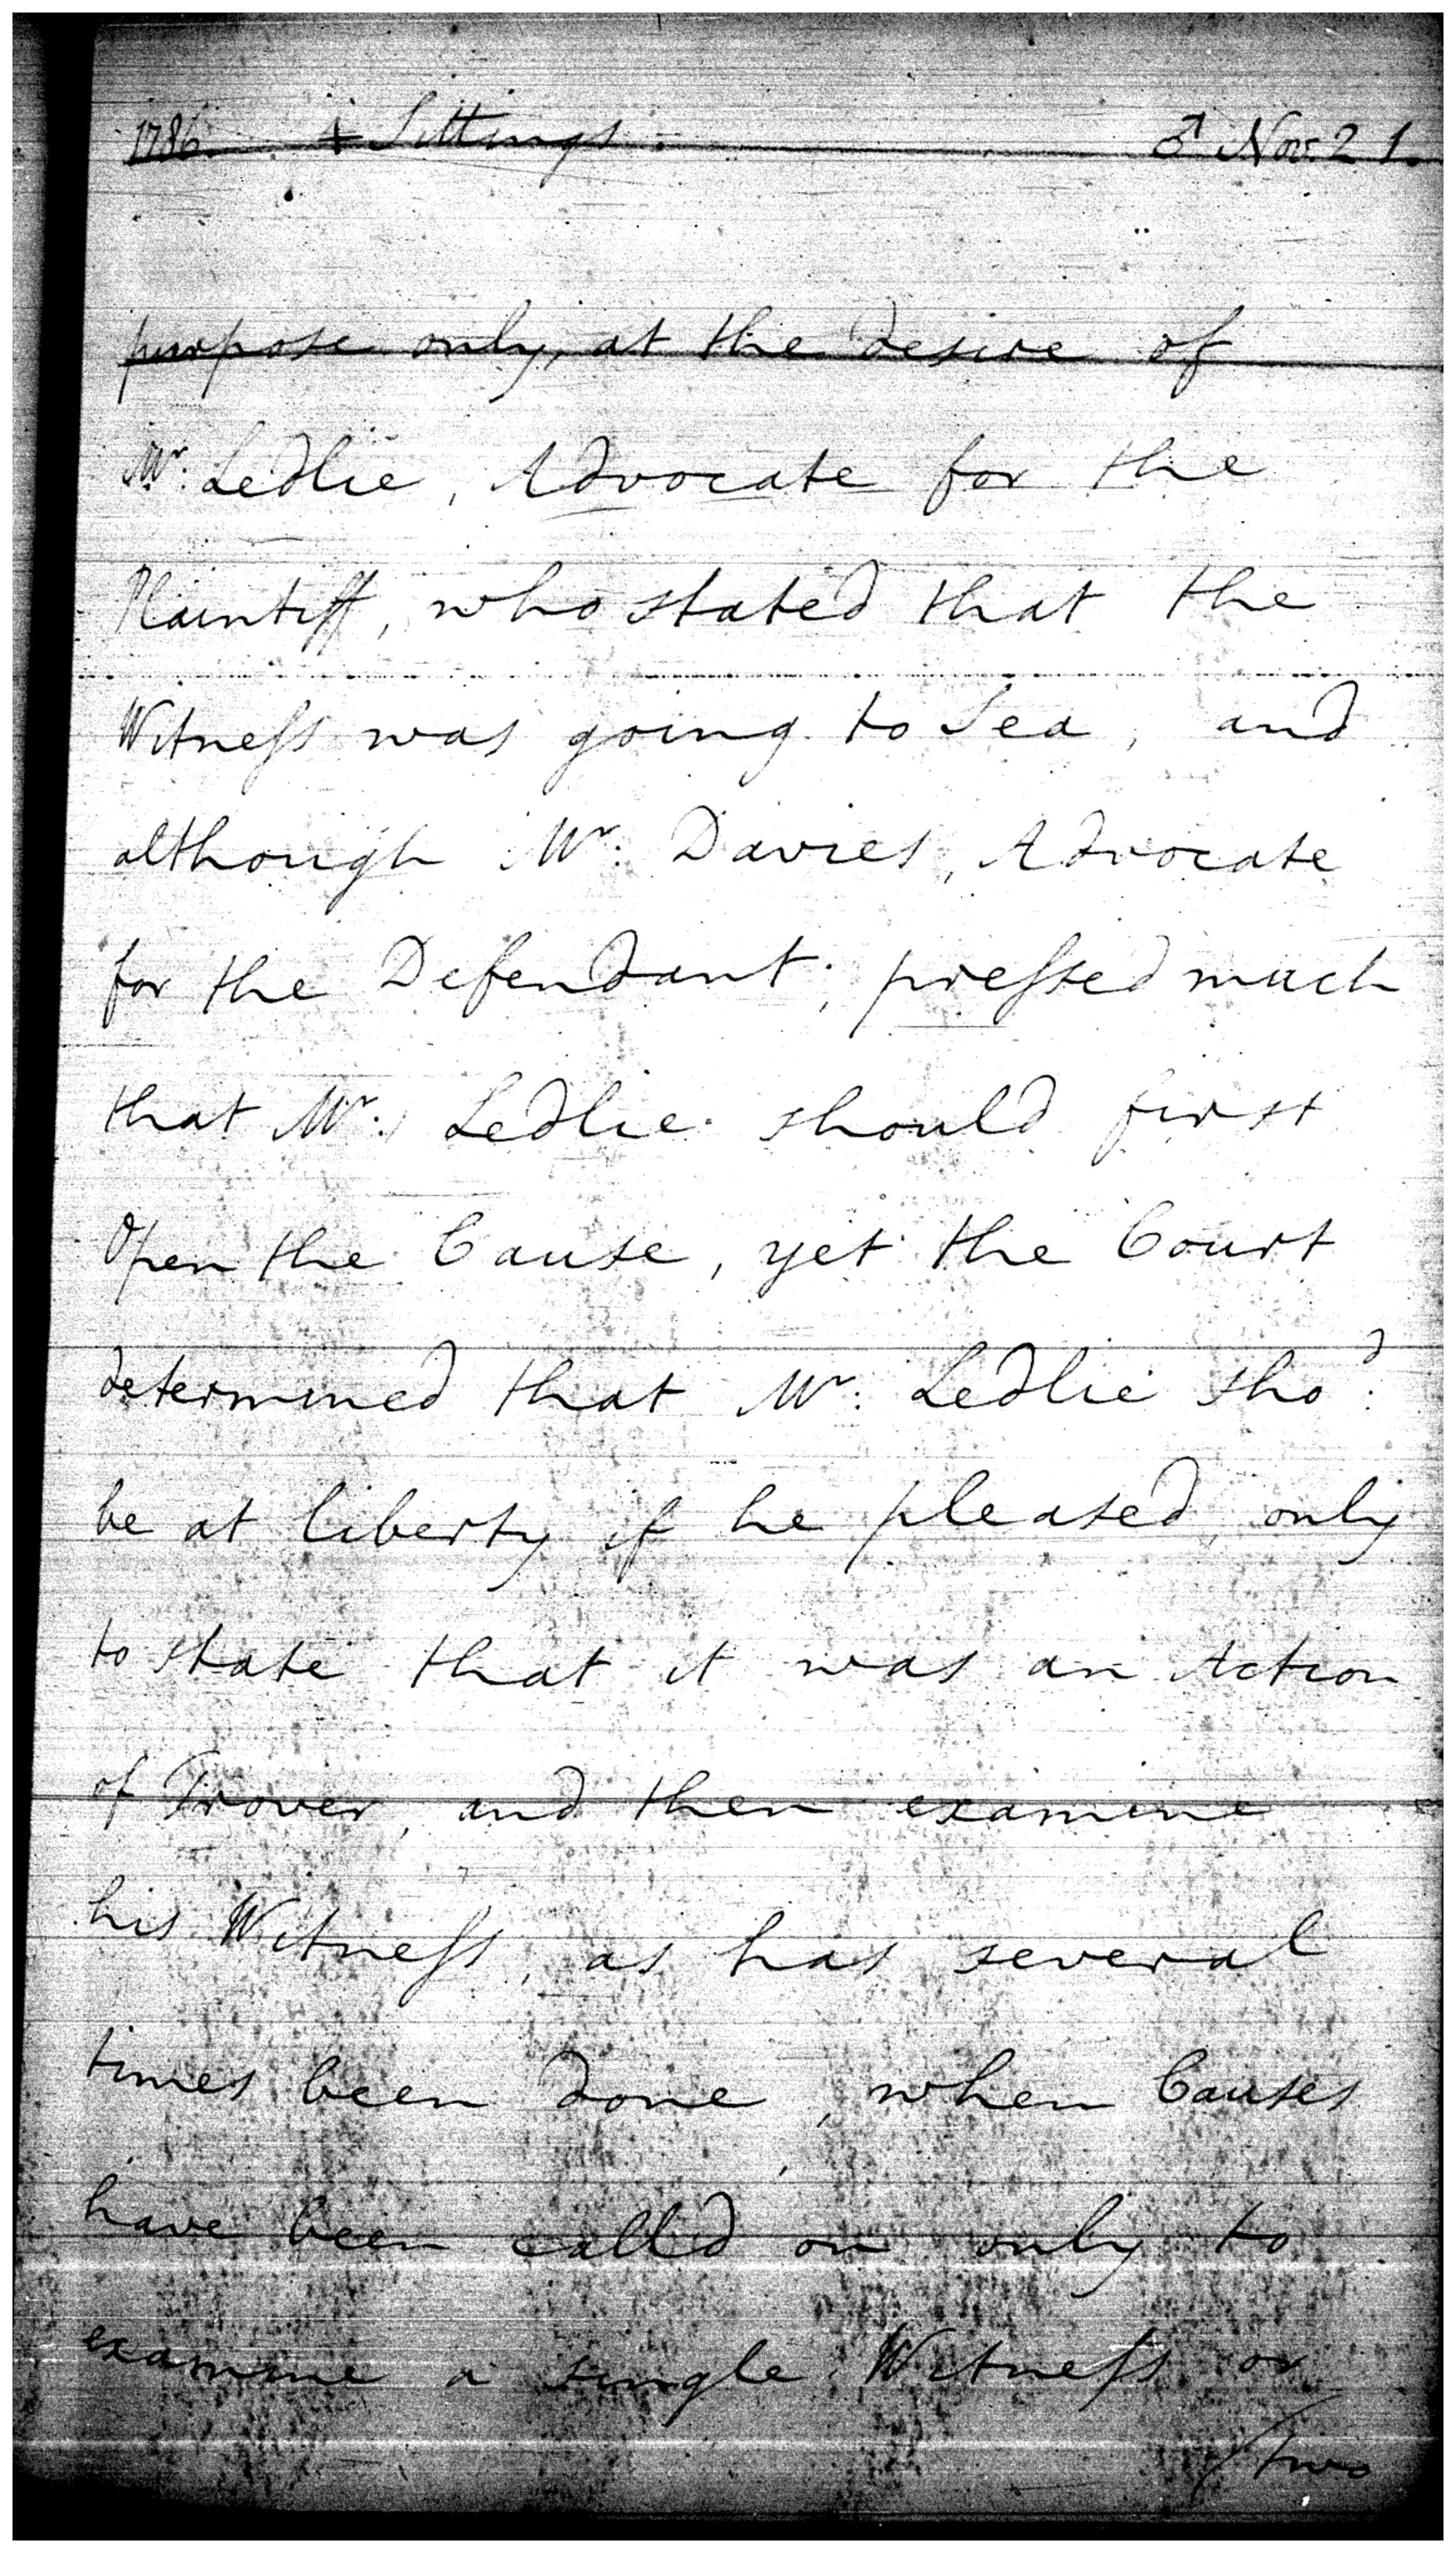 1786. 4 Sittings. ♂ Nov. 21.
purpose only, at the desire of
Mr. Ledlie, Advocate for the
Plaintiff, who stated that the
Witneſs was going to Sea, and
although Mr. Davies, Advocate
for the Defendant, preſsed much
that Mr. Ledlie should first
Open the Cause, yet the Court
determined that Mr. Ledlie shod.
be at liberty if he pleased, only
to state that it was an Action
of Trover, and then examine
his Witneſs, as has several
times been done, when Causes
have been called on only to
examine a single Witneſs or
/two